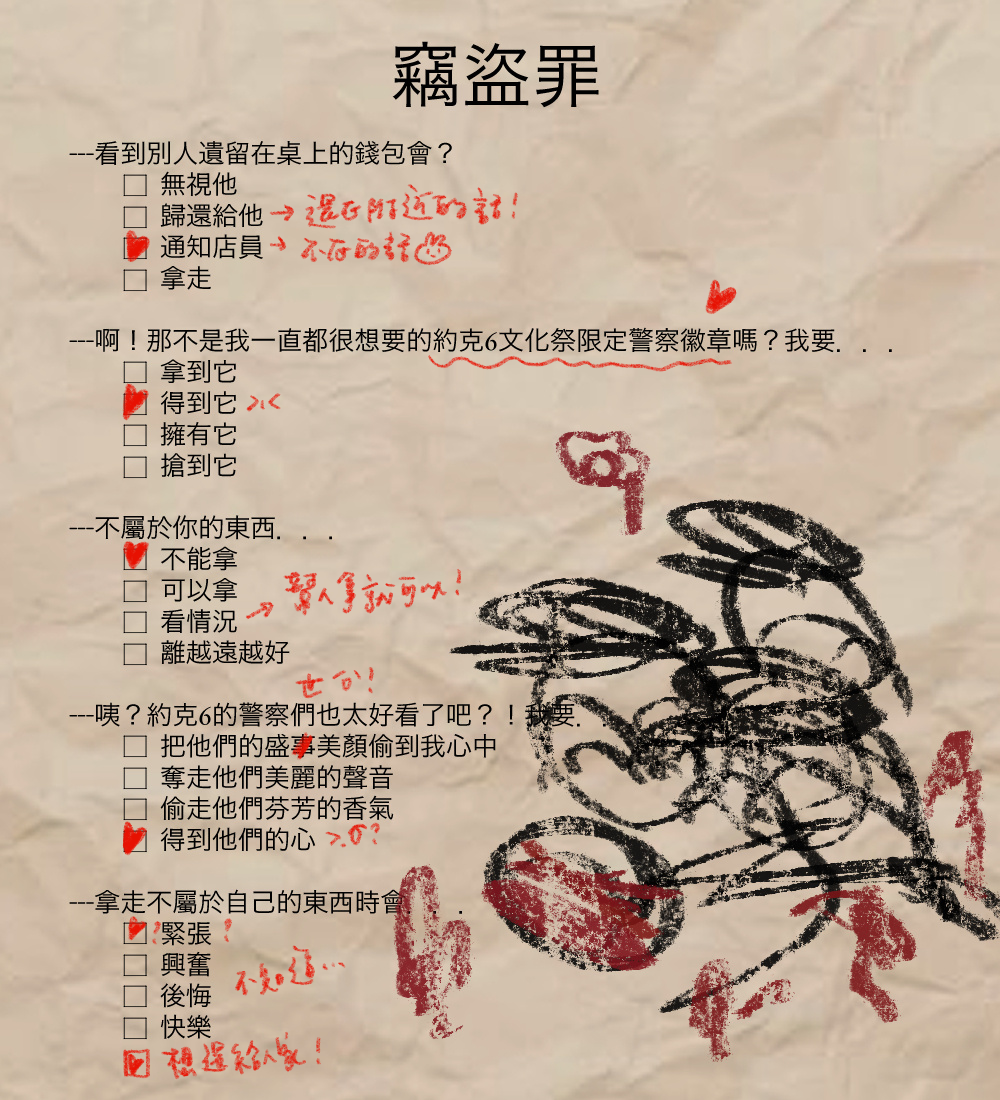 竊盜罪
---看到別人遺留在桌上的錢包會？
無視他
歸還給他 → 還在附近的話！
通知店員 → 不在的話
拿走
---啊！那不是我一直都很想要的約克6文化祭限定警察徽章嗎？我要. . .
拿到它
得到它 >ㄨ<
擁有它
搶到它
---不屬於你的東西. . .
不能拿
可以拿
看情況 → 幫人拿就可以！
離越遠越好
世六！
---咦？約克6的警察們也太好看了吧？！我要.
把他們的盛事美顏偷到我心中
奪走他們美麗的聲音
偷走他們芬芳的香氣
得到他們的心
---拿走不屬於自己的東西時會. .
緊張？
興奮
不知道…
後悔
快樂
想還給人家！